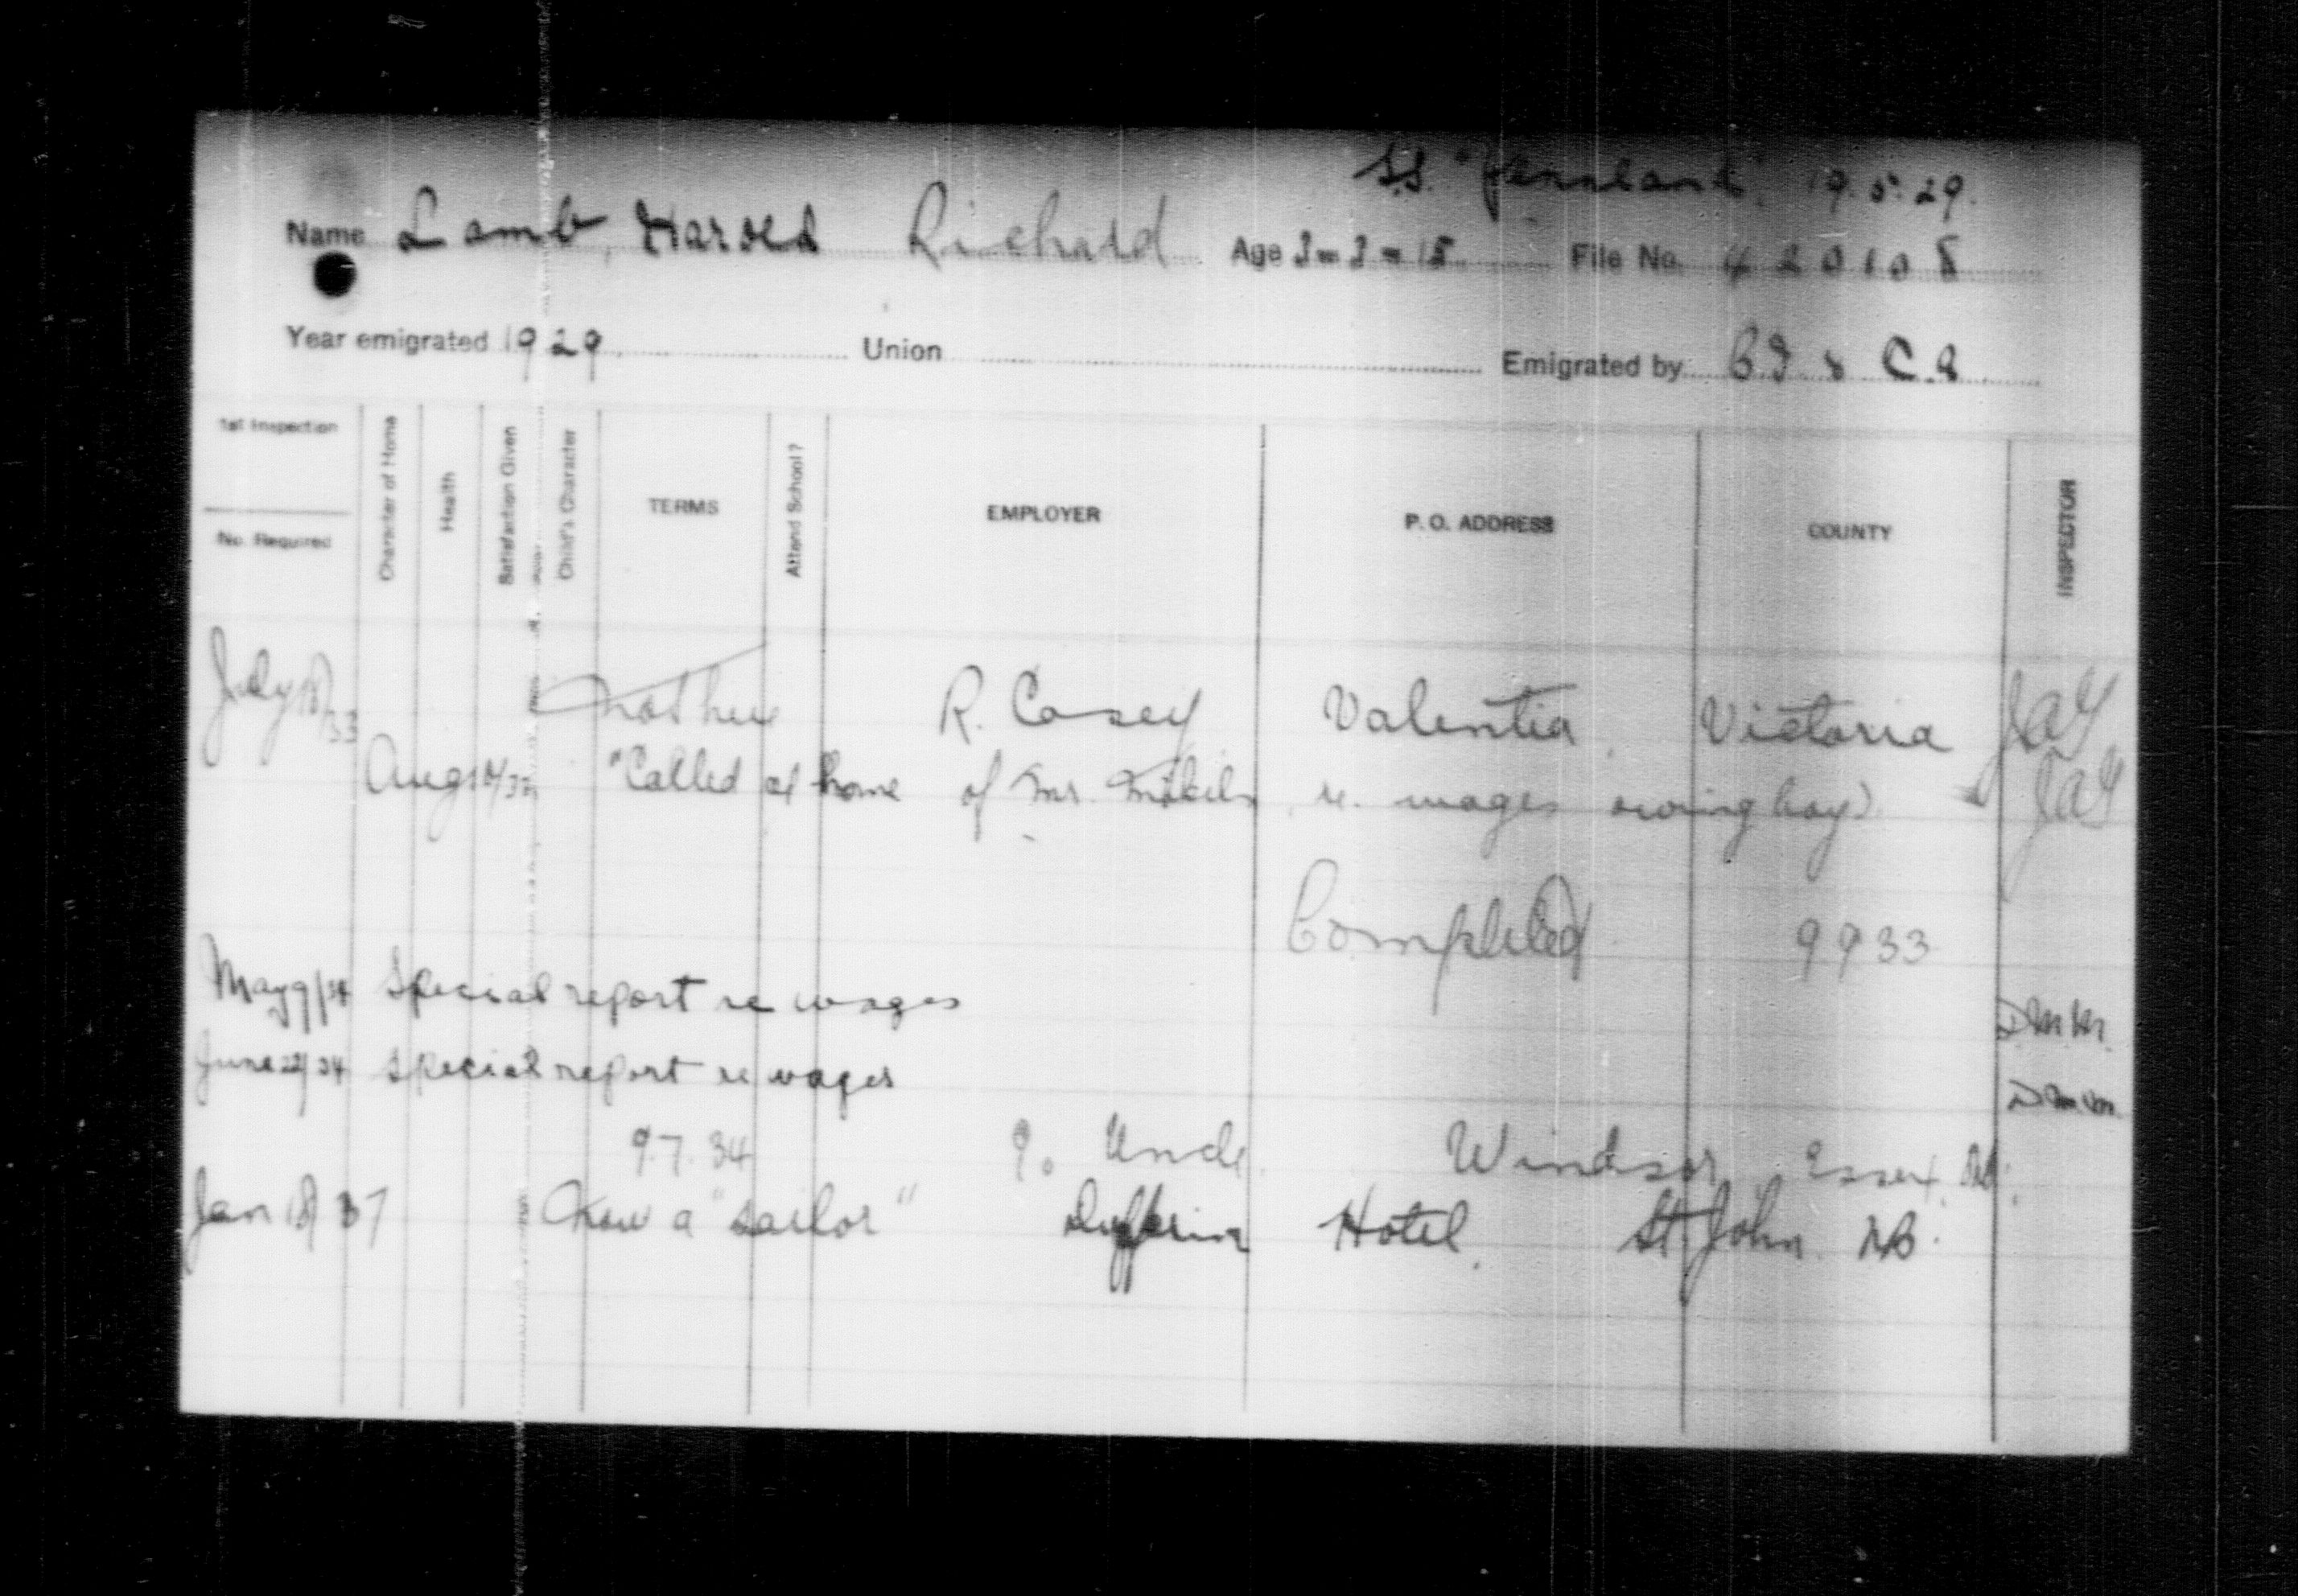 S.S. "Pennland" 19.5.29.
Name Lamb, Harold Richard Age 3=3=15 File No. 420108
Year emigrated 1929 Union Emigrated by
1st Inspection
No. Required
Character of Home
Health
Satisfaction Given
Child's Character
TERMS
Attend School?
EMPLOYER
P. O. ADDRESS
COUNTY
INSPECTOR
July 18/33 Not here R. Casey Valentia Victoria
Aug "Called at home of Mr. re. wages owing boy)
Completed 9 9 33
May 9/34 Special report re wages
June 22/34 Special report re wages
9.7.34 % Uncle Windsor Essex
Jan 18/37 Now a "sailor" Dufferin Hotel. St. John NB.